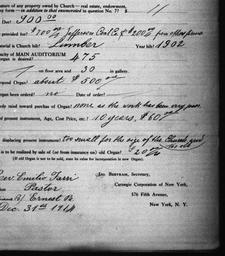 ature of any property owned by Church — real estate, endowment,
ny form — in addition to that enumerated in question No. 7? $ 11
Due? 900.00
provided for? $700 Jefferson Coal & $200 from
aterial is Church built? Lumber Year built? 1902
Capacity of MAIN AUDITORIUM
organ is desired? 475
on floor area and 30 in gallery.
Proposed Organ? about $500
organ been ordered? no Date of order?
ady raised toward purchase of Organ? none as the work has been very
f present instrument, Age, Cost Price, etc.? 10 years, $60
displacing present instrument? too small for the size of the Church and
is to be realized by sale of (or from insurance on) old Organ? $20
(If old Organ is not to be sold, state its value for incorporation in new Organ)
Rev Emilio Farri
Pastor
Ernest Pa.
Dec. 31st 1914
JAS. BERTRAM, Secretary,
Carnegie Corporation of New York,
576 Fifth Avenue,
New York, N. Y.